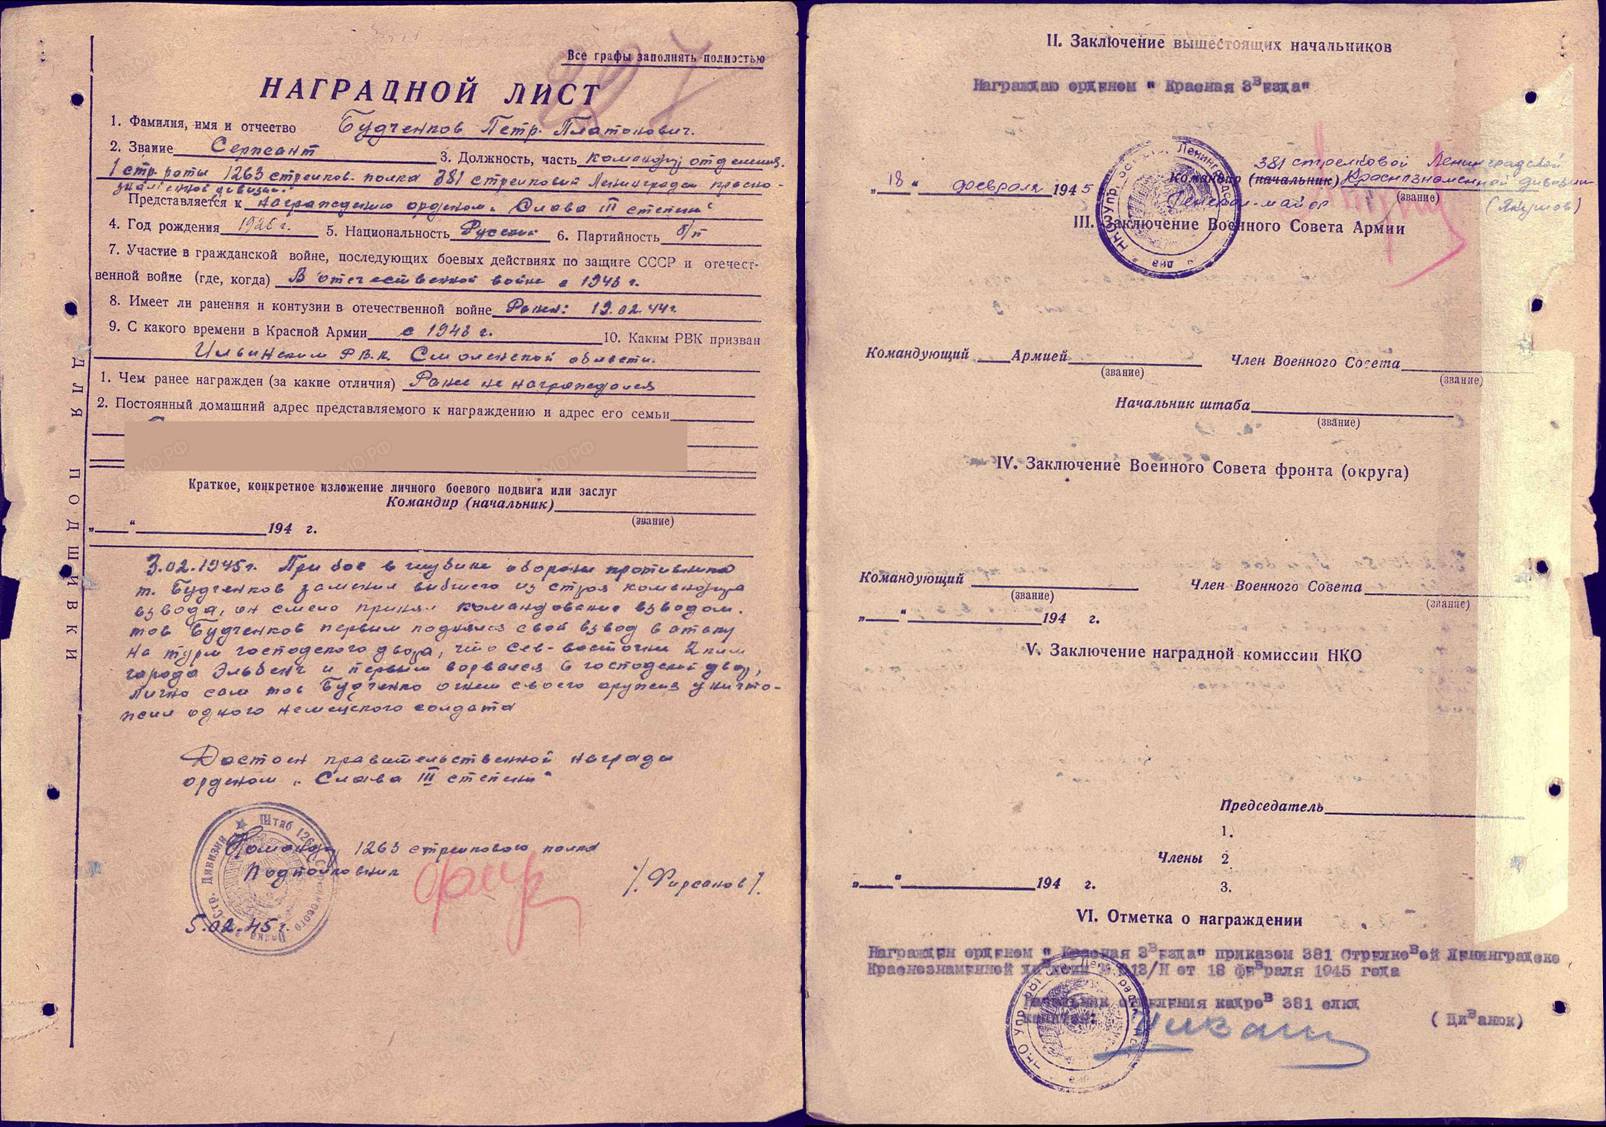 Все графы заполнять полностью
НАГРАДНОЙ ЛИСТ
1. Фамилия, имя и отчество Будченков Петр Платонович.
2. Звание Сержант 3. Должность, часть командир отделения
1 стр. роты 1263 стрелков. полка 381 стрелковой Ленинградск. красно-
знаменной дивизии.
Представляется к награждению орденом „Слава III степени"
4. Год рождения 1926 г. 5. Национальность Русский 6. Партийность б/п
7. Участие в гражданской войне, последующих боевых действиях по защите СССР и отечест-
венной войне (где, когда) В отечественной войне с 1943 г.
8. Имеет ли ранения и контузии в отечественной войне Ранен: 19.02.44г.
9. С какого времени в Красной Армии с 1943 г. 10. Каким РВК призван
Ильинским РВК Смоленской области.
1. Чем ранее награжден (за какие отличия) Ранее не награждался
2. Постоянный домашний адрес представляемого к награждению и адрес его семьи
Краткое, конкретное изложение личного боевого подвига или заслуг
Командир (начальник)
(звание)
„ “ 194 г.
3.02.1945г. При бое в глубине обороны противника
т. Будченков заменил выбывшего из строя командира
взвода, он смело принял командование взводом.
тов Будченков первым поднял свой взвод в атаку
на турм господского двора, что сев-восточн 2 км
города Эльбенг и первым ворвался в господский двор,
Лично сам тов Будченко огнем своего оружия уничто-
жил одного немецкого солдата
Достоин правительственной награды
орденом „Слава III степени"
Командир 1263 стрелкового полка
Подполковник /Фирсанов/.
5.02.45г.
Штаб 1263 Стр. Дивизии
ДЛЯ ПОДШИВКИ
II. Заключение вышестоящих начальников
Награждаю орденом " Красная Звезда"
381 стрелковой Ленинградской
„18“ февраля 1945 Командир (начальник) Краснознаменной дивизии
Генерал-майор (звание) (Якушов)
III. Заключение Военного Совета Армии
Командующий Армией Член Военного Совета
(звание) (звание)
Начальник штаба
(звание)
IV. Заключение Военного Совета фронта (округа)
Командующий Член Военного Совета
(звание) (звание)
„ “ 194 г.
V. Заключение наградной комиссии НКО
Председатель
1.
Члены 2
3.
„ “ 194 г.
VI. Отметка о награждении
Награжден орденом " Красная Звезда" приказом 381 Стрелковой Ленинградско
Краснознаменной дивизии № 013/Н от 18 февраля 1945 года
Начальник отделения кадров 381 слкд
капитан: (Циванюк)